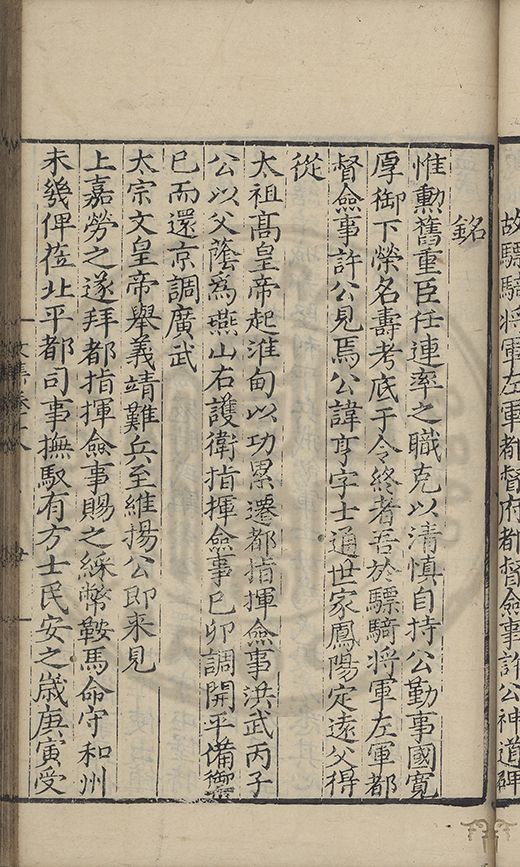 故驃騎將軍左軍都督府都督僉事許公神道碑
銘
惟勲舊重臣任連率之職克以清慎自持公勤事國寛
厚御下榮名壽考底于令終者吾於驃騎將軍左軍都
督僉事許公見焉公諱亨字士通世家鳳陽定遠父得
從
太祖髙皇帝起淮甸以功累遷都指揮僉事洪武丙子
公以父蔭為燕山右護衛指揮僉事已卯調開平備禦
已而還京調廣武
太宗文皇帝舉義靖難兵至維揚公即来見
上嘉勞之遂拜都指揮僉事賜之綵幣鞍馬命守和州
未幾俾莅北平都司事撫馭有方士民安之歲庚寅受